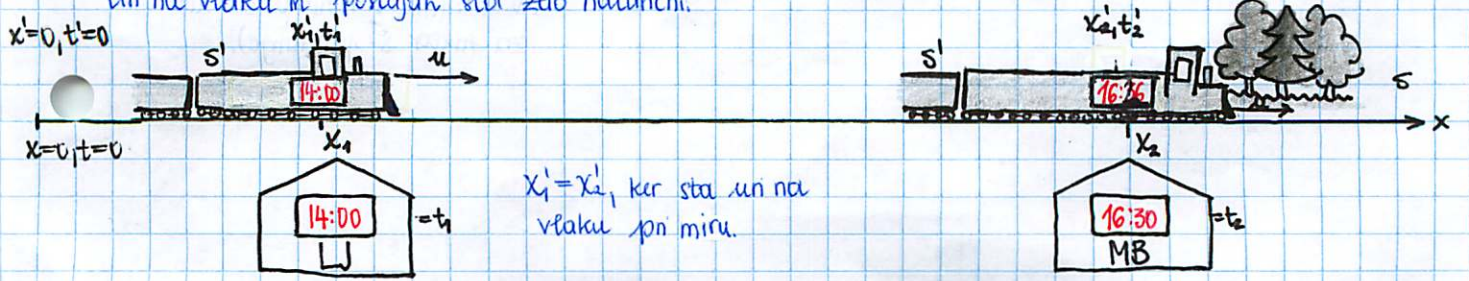 uri na vlaku in postajah sta zelo natančni.
x'=0, t'=0
x₁', t₁'
S'
u
14:00
x₂', t₂'
S'
S
x=0, t=0
x₁
x₂
x
14:00
=t₁
LJ
x₁'=x₂', ker sta uri na
vlaku pri miru.
16:30
=t₂
MB